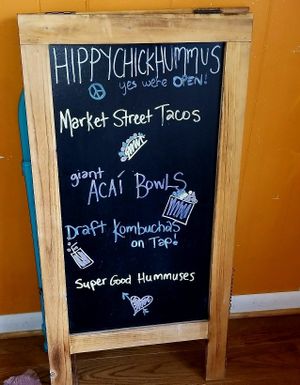 HIPPYCHICKHUMMUS
yes we're OPEN!
Market Street Tacos
giant
AÇAÍ BOWLS
Draft Kombucha's
on Tap!
Super Good Hummuses